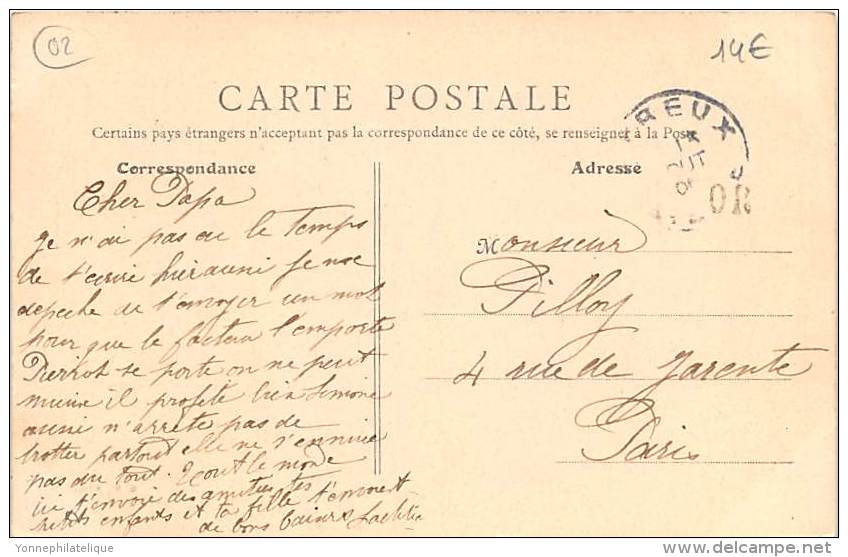 02
14€
CARTE POSTALE
Certains pays étrangers n'acceptant pas la correspondance de ce côté, se renseigner à la Poste
Correspondance
Adresse
REUX
OR
Cher Papa
je n'ai pas eu le temps
de t'ecrire hier aussi je me
depeche de t'envoyer un mot
pour que le facteur l'emporte
Pierrot se porte on ne peut
mieux il profite bien Simone
aussi n'arrete pas de
trotter partout elle ne s'ennuie
pas du tout. Tout le monde
ici t'envoie des amitiés tes
petits enfants et ta fille t'envoient
de bons baisers
Monsieur
Pilloy
4 rue de Jarente
Paris
Yonnephilatelique
delcampe.net